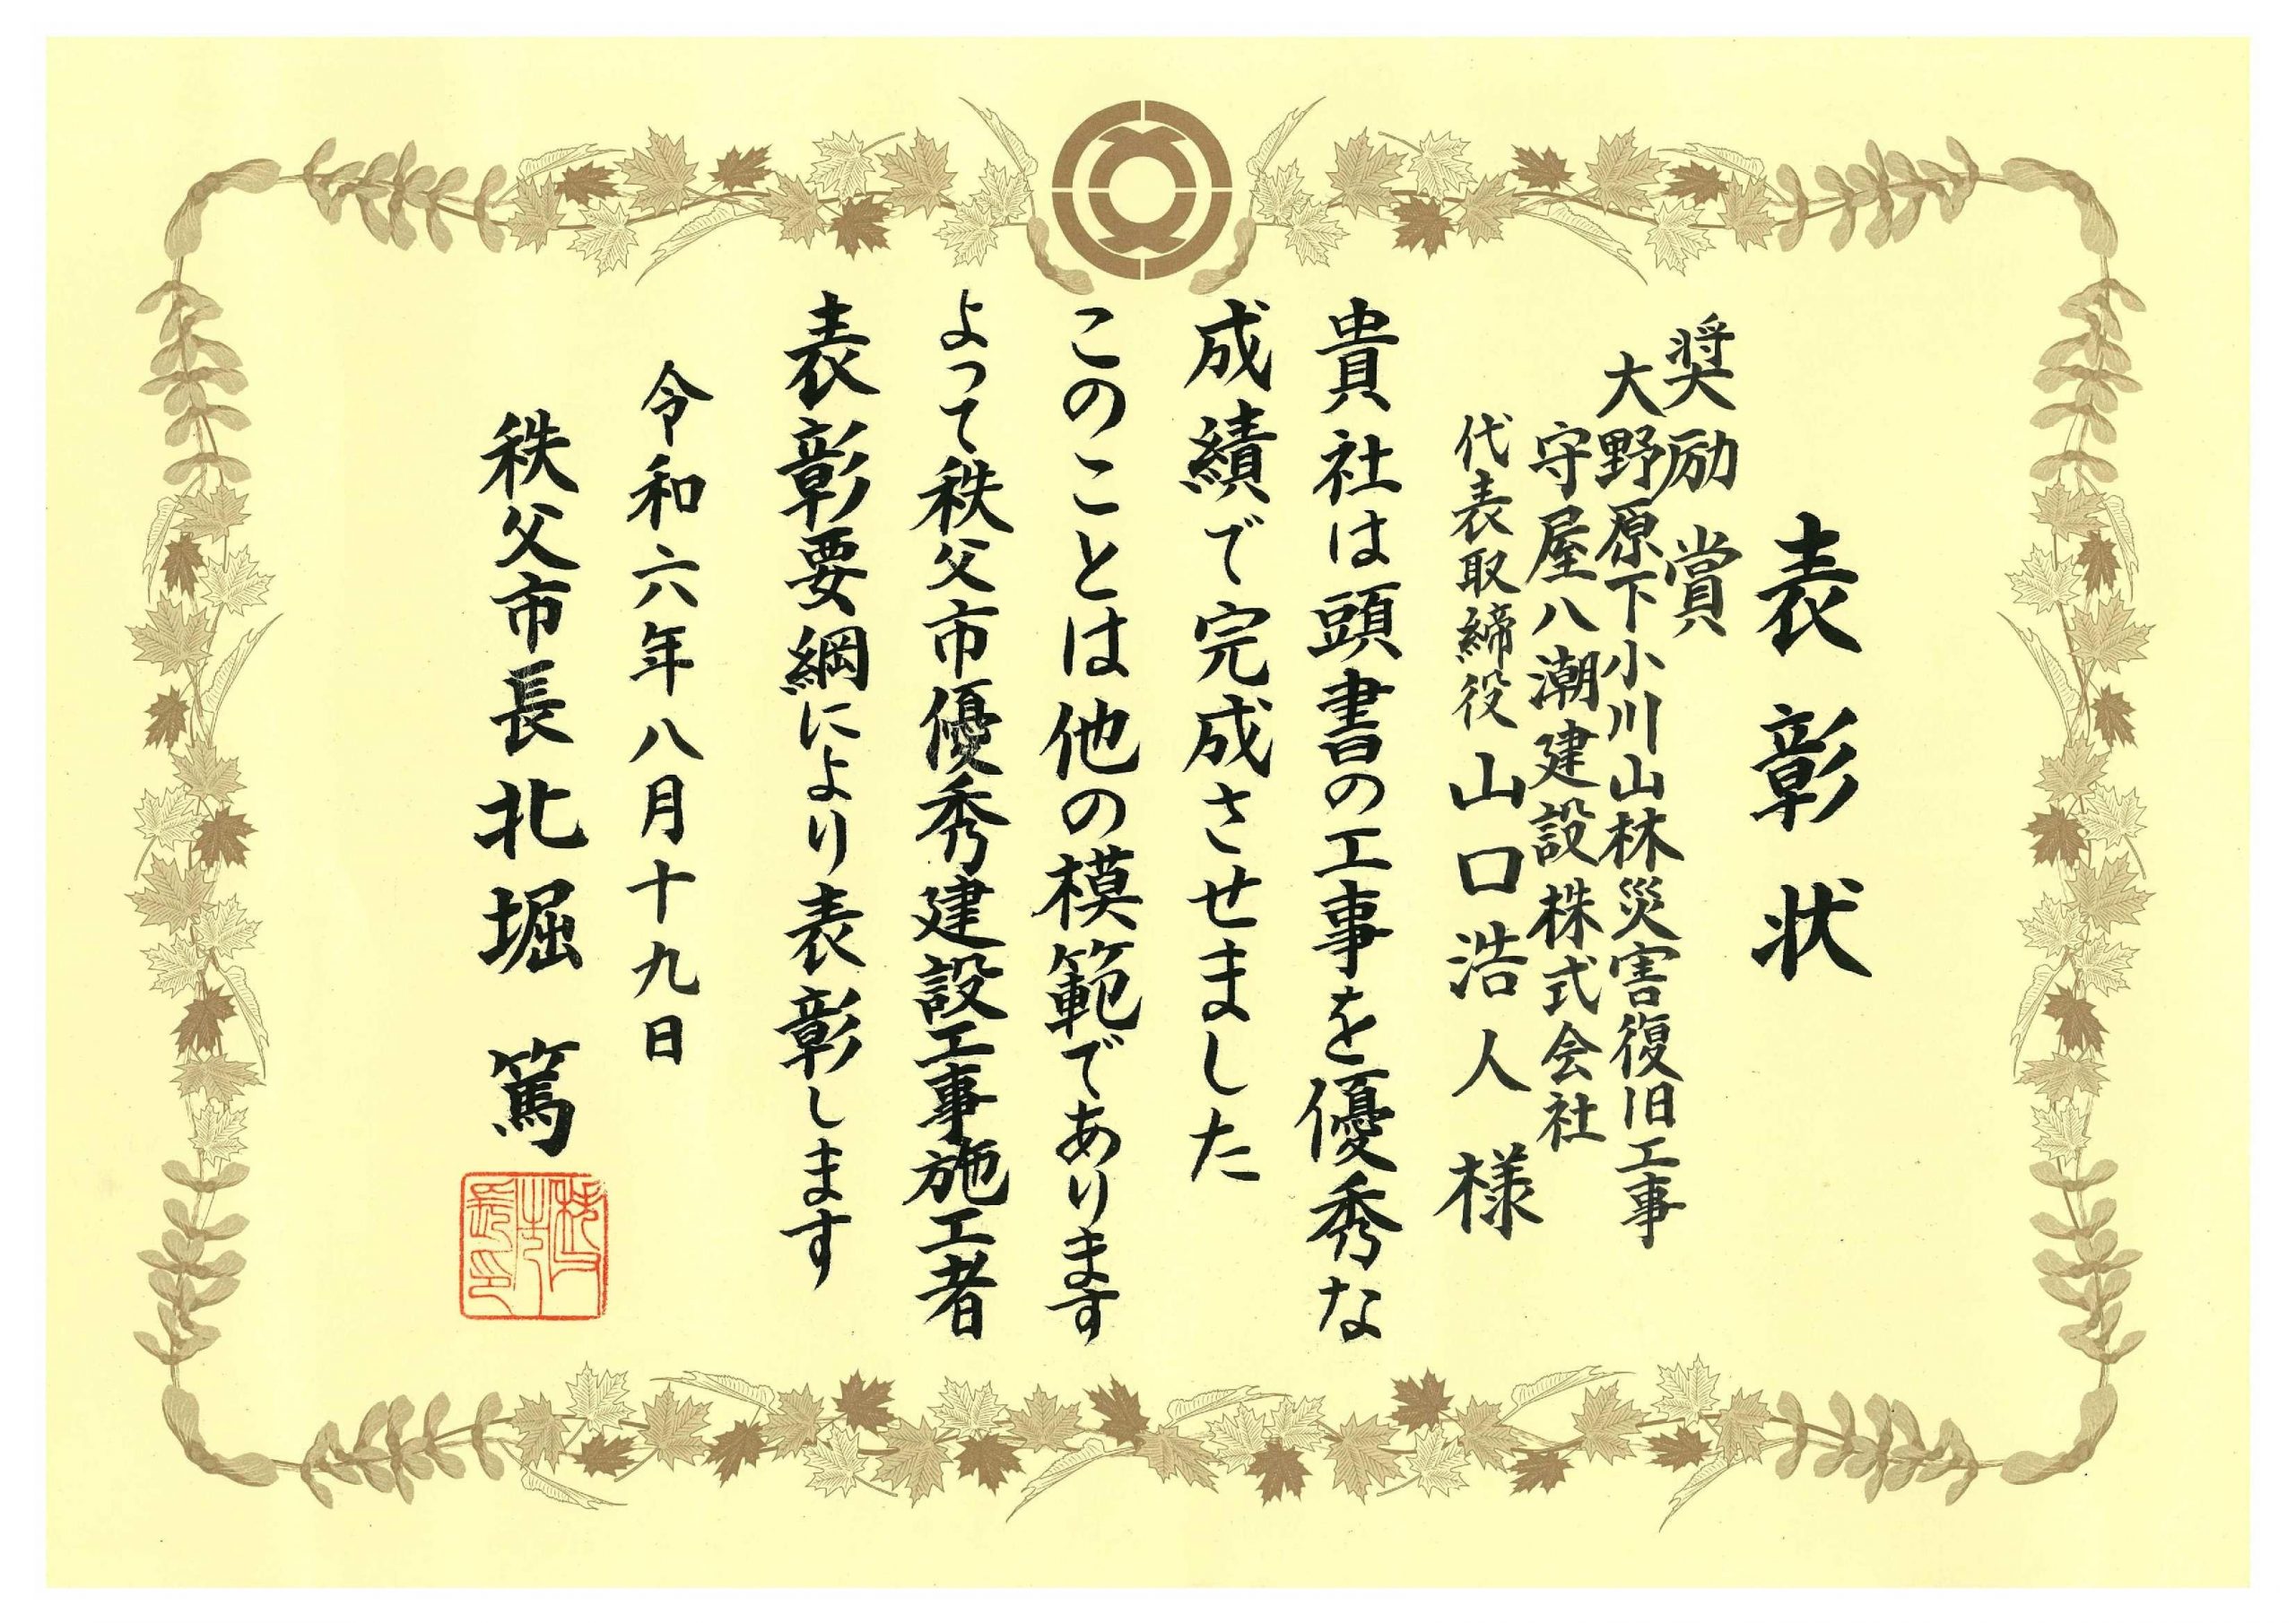 表彰状
奨励賞
大野原下小川山林災害復旧工事
守屋八潮建設株式会社
代表取締役 山口浩人 様
貴社は頭書の工事を優秀な
成績で完成させました
このことは他の模範であります
よって秩父市優秀建設工事施工者
表彰要綱により表彰します
令和六年八月十九日
秩父市長 北堀 篤
秩父市長印